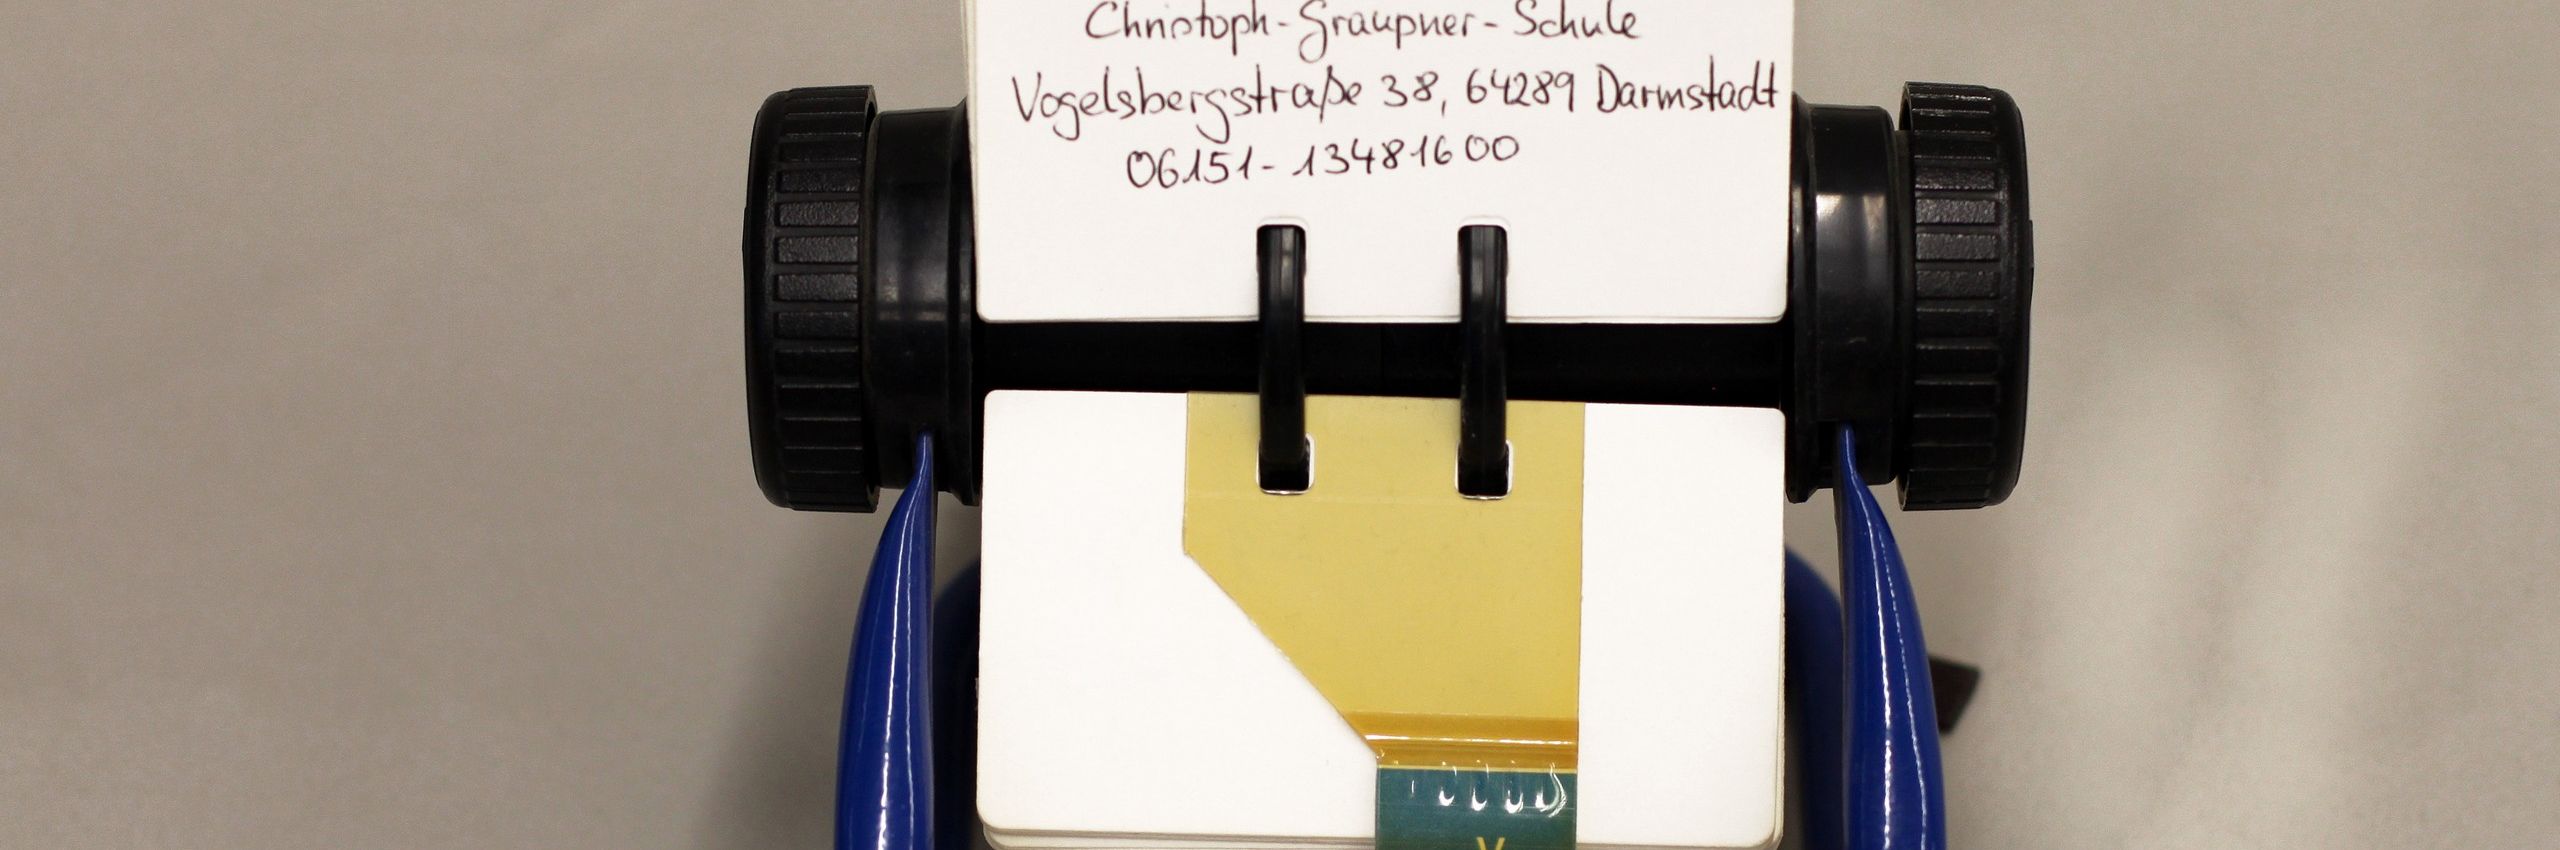 Christoph-Graupner-Schule
Vogelsbergstraße 38, 64289 Darmstadt
06151-13481600
V